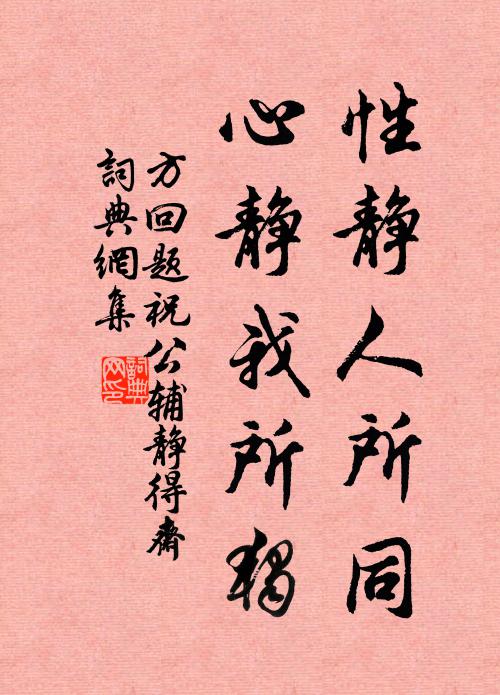 性静人所同
心静我所獨
方回題祝公辅静得齋
詞典網集
詞典網印